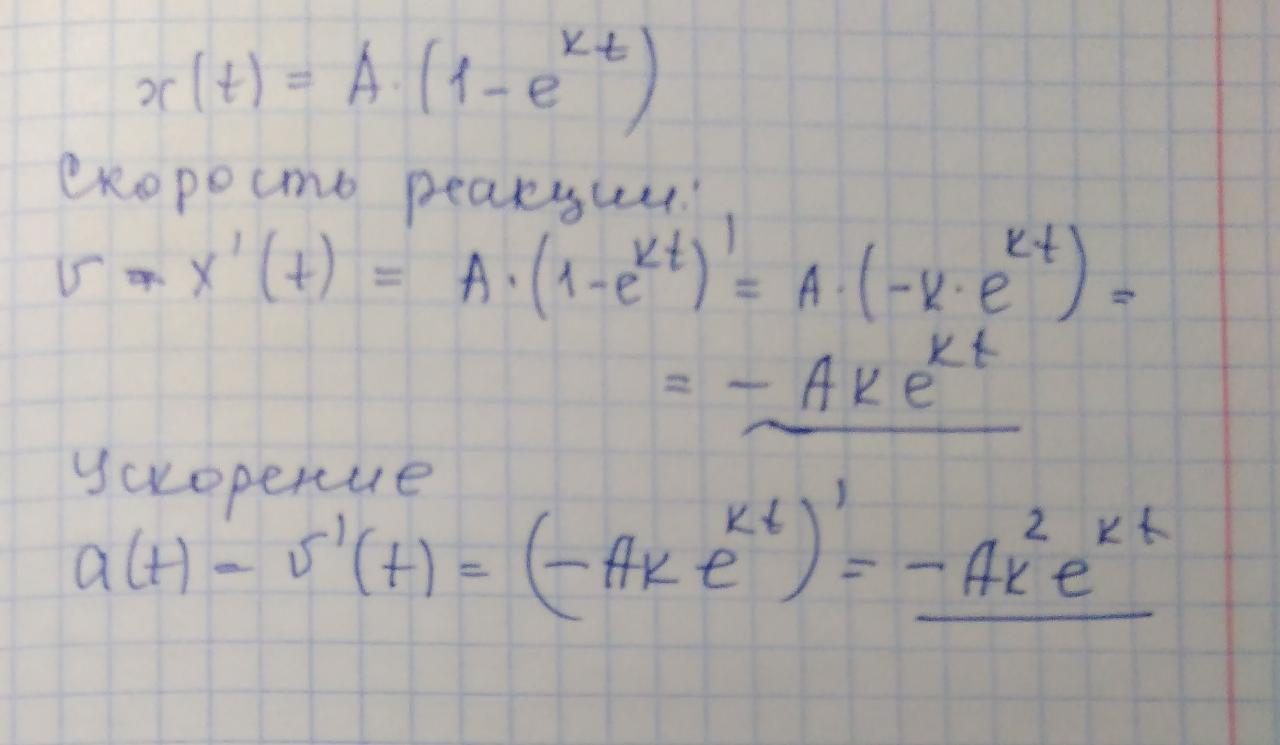 x(t) = A·(1-e^{kt})
Скорость реакции:
v = x'(t) = A·(1-e^{kt})' = A·(-k·e^{kt}) =
= -Ake^{kt}
Ускорение
a(t) - v'(t) = (-Ake^{kt})' = -Ak^{2}e^{kt}